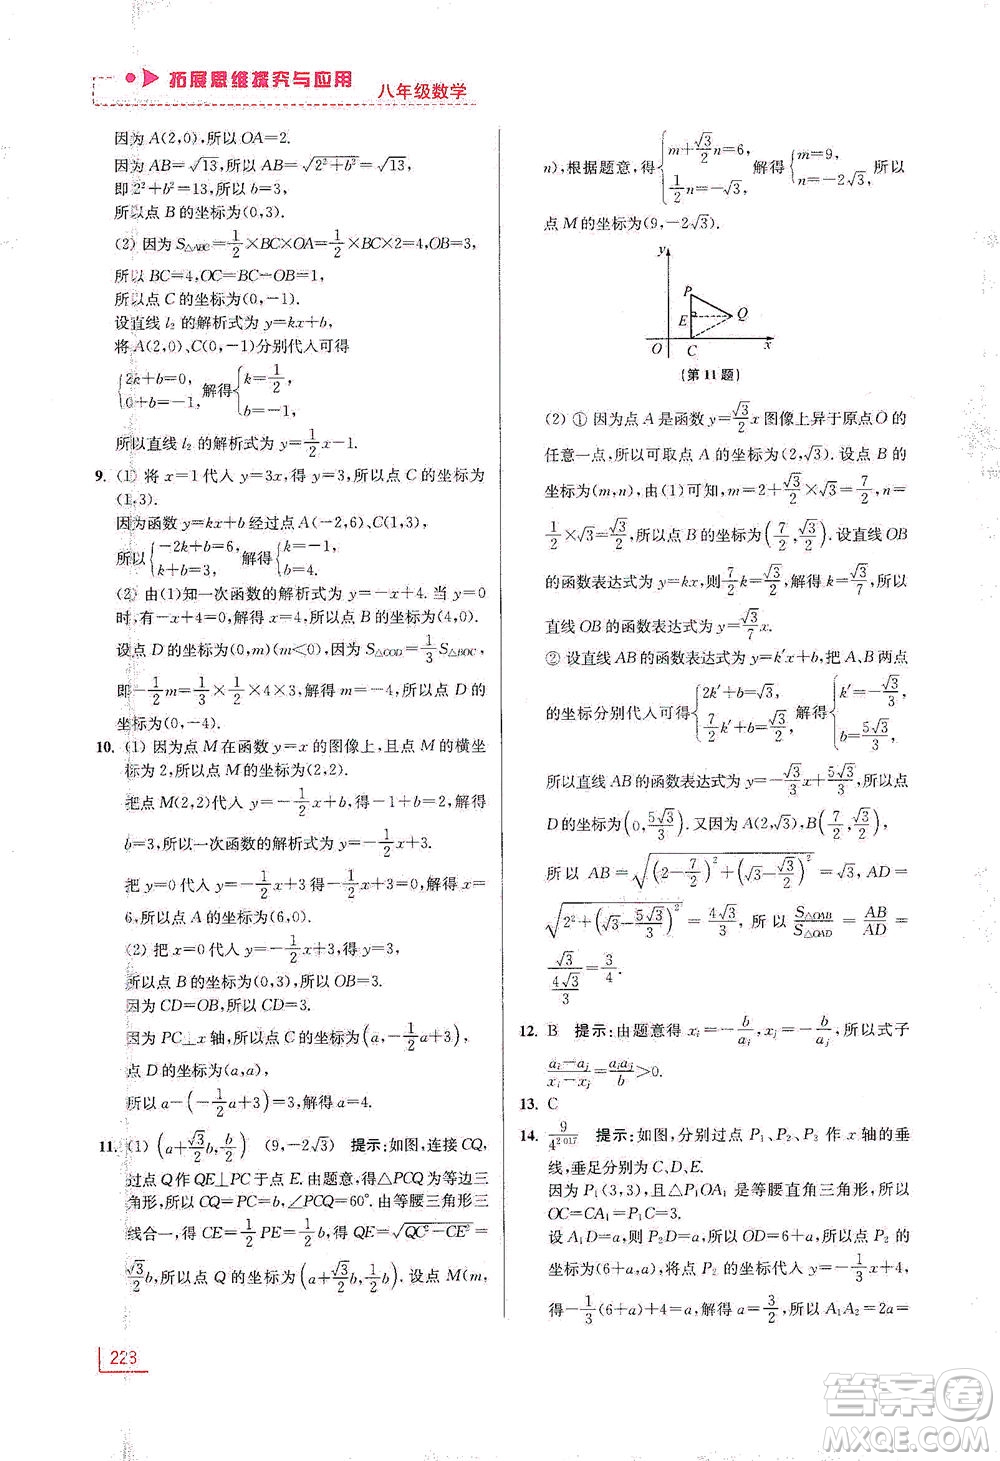 拓展思维探究与应用
八年级数学
因为 A(2,0),所以 OA=2.
因为 AB=√13,所以 AB=√(2²+b²)=√13,
即 2²+b²=13,所以 b=3,
所以点 B 的坐标为(0,3).
(2) 因为 S△ABC=1/2×BC×OA=1/2×BC×2=4,OB=3,
所以 BC=4,OC=BC-OB=1,
所以点 C 的坐标为(0,-1).
设直线 l₂ 的解析式为 y=kx+b,
将 A(2,0)、C(0,-1)分别代入可得
{2k+b=0, 0+b=-1, 解得{k=1/2, b=-1.
所以直线 l₂ 的解析式为 y=1/2x-1.
9. (1) 将 x=1 代入 y=3x,得 y=3,所以点 C 的坐标为
(1,3).
因为函数 y=kx+b 经过点 A(-2,6)、C(1,3),
所以{-2k+b=6, k+b=3, 解得{k=-1, b=4.
(2) 由(1)知一次函数的解析式为 y=-x+4. 当 y=0
时,有-x+4=0,解得 x=4.所以点 B 的坐标为(4,0).
设点 D 的坐标为(0,m)(m<0),因为 S△COD=1/3S△BOC,
即-1/2m=1/3×1/2×4×3,解得 m=-4,所以点 D 的
坐标为(0,-4).
10. (1) 因为点 M 在函数 y=x 的图像上,且点 M 的横坐
标为 2,所以点 M 的坐标为(2,2).
把点 M(2,2)代入 y=-1/2x+b,得-1+b=2,解得
b=3,所以一次函数的解析式为 y=-1/2x+3.
把 y=0 代入 y=-1/2x+3 得-1/2x+3=0,解得 x=
6,所以点 A 的坐标为(6,0).
(2) 把 x=0 代入 y=-1/2x+3 得 y=3,
所以点 B 的坐标为(0,3),所以 OB=3.
因为 CD=OB,所以 CD=3.
因为 PC⊥x 轴,所以点 C 的坐标为(a,-1/2a+3),
点 D 的坐标为(a,a),
所以 a-(-1/2a+3)=3,解得 a=4.
11. (1) (a+√3/2b,b/2) (9,-2√3) 提示:如图,连接 CQ,
过点 Q 作 QE⊥PC 于点 E. 由题意,得△PCQ 是等边三
角形,所以 CQ=CP=b,∠PCQ=60°. 由等腰三角形三
线合一,得 CE=1/2PE=1/2b,所以 QE=√(QC²-CE²)=
√3/2b,所以点 Q 的坐标为(a+√3/2b,1/2b). 设点 M(m,
n),根据题意,得{m+√3/2n=6, 1/2n=-√3, 解得{m=9, n=-2√3, 所以
点 M 的坐标为(9,-2√3).
y
P
E
Q
O
C
x
(第 11 题)
(2) ① 因为点 A 是函数 y=√3/2x 图像上异于原点 O 的
任意一点,所以可取点 A 的坐标为(2,√3). 设点 B 的
坐标为(m,n),由(1)可知,m=2+√3/2×√3=7/2,n=
1/2×√3=√3/2,所以点 B 的坐标为(7/2,√3/2). 设直线 OB
的函数表达式为 y=kx,则7/2k=√3/2,解得 k=√3/7,所以
直线 OB 的函数表达式为 y=√3/7x.
② 设直线 AB 的函数表达式为 y=k′x+b,把 A、B 两点
的坐标分别代入可得{2k′+b=√3, 7/2k′+b=√3/2, 解得{k′=-√3/3, b=5√3/3,
所以直线 AB 的函数表达式为 y=-√3/3x+5√3/3,所以点
D 的坐标为(0,5√3/3). 又因为 A(2,√3),B(7/2,√3/2),
所以 AB=√((2-7/2)²+(√3-√3/2)²)=√3, AD=
√(2²+(√3-5√3/3)²)=4√3/3, 所以 S△OAB/S△OAD=AB/AD=
√3/(4√3/3)=3/4.
12. B 提示:由题意得 xᵢ=-b/aᵢ,xⱼ=-b/aⱼ,所以式子
(aᵢ-aⱼ)/(xᵢ-xⱼ)=aᵢaⱼ/b>0.
13. C
14. 9/4²⁰¹⁷ 提示:如图,分别过点 P₁、P₂、P₃ 作 x 轴的垂
线,垂足分别为 C、D、E.
因为 P₁(3,3),且△P₁OA₁ 是等腰直角三角形,所以
OC=CA₁=P₁C=3.
设 A₁D=a,所以 P₂D=a,所以 OD=6+a,所以点 P₂ 的
坐标为(6+a,a),将点 P₂ 的坐标代入 y=-1/3x+4,
得-1/3(6+a)+4=a,解得 a=3/2,所以 A₁A₂=2a=
223
答案圈
MXQE.COM